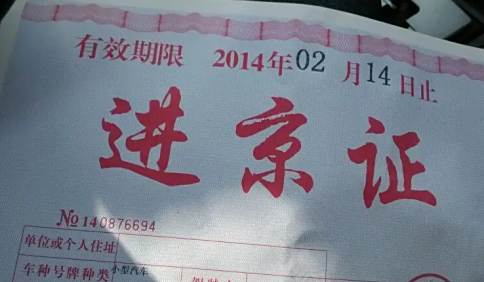 有效期限 2014年02月14日止
进京证
№140876694
单位或个人住址
车种号牌种类 小型汽车